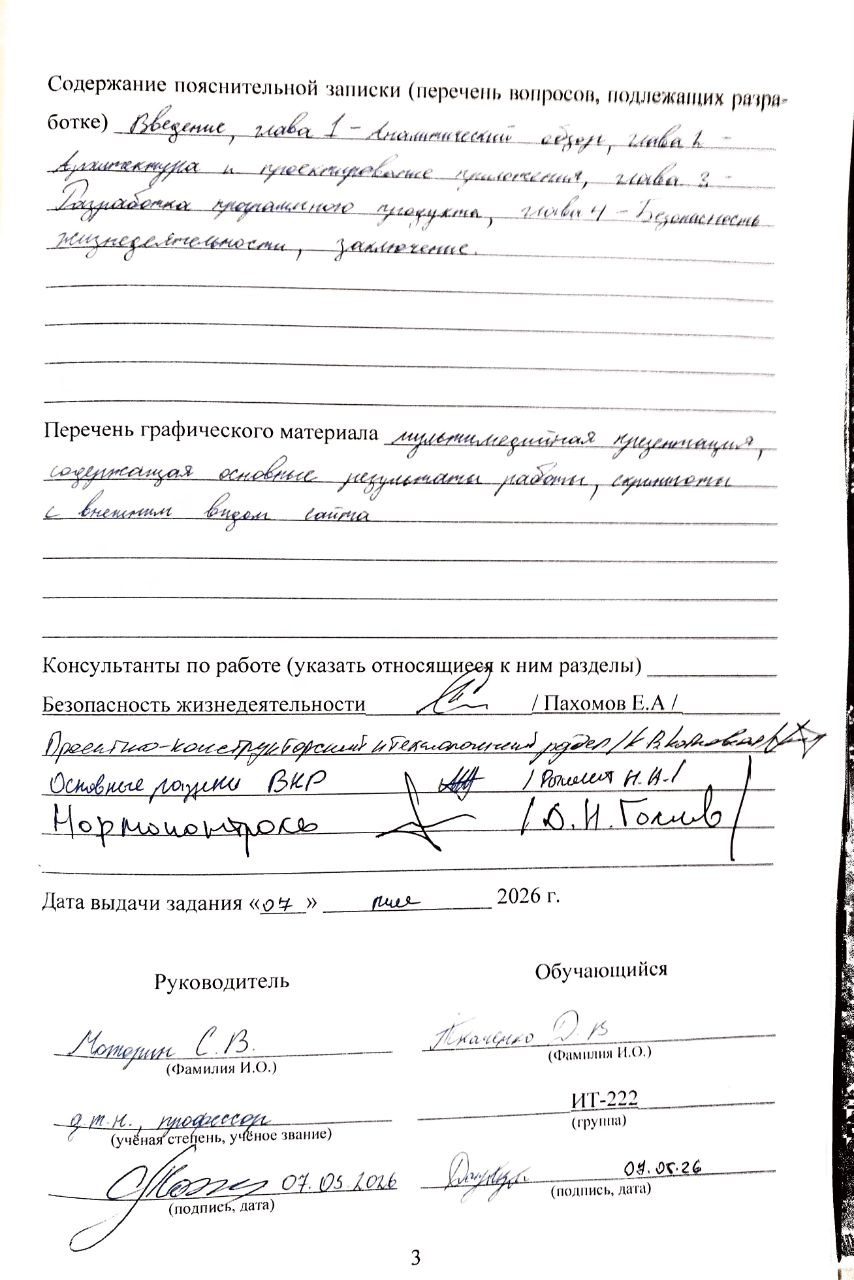 Содержание пояснительной записки (перечень вопросов, подлежащих разра-
ботке) Введение, глава 1 – Аналитический обзор, глава 2 –
Архитектура и проектирование приложения, глава 3 –
Разработка программного продукта, глава 4 – Безопасность
жизнедеятельности, заключение.
Перечень графического материала мультимедийная презентация,
содержащая основные результаты работы, скриншоты
с внешним видом сайта
Консультанты по работе (указать относящиеся к ним разделы)
Безопасность жизнедеятельности / Пахомов Е.А /
Проектно-конструкторский и технологический раздел
Основные разделы ВКР
Нормоконтроль
Дата выдачи задания «07» мая 2026 г.
Руководитель Обучающийся
Моторин С.В. Ткаченко Д.В
(Фамилия И.О.) (Фамилия И.О.)
д.т.н., профессор ИТ-222
(учёная степень, учёное звание) (группа)
07.05.2026 07.05.26
(подпись, дата) (подпись, дата)
3